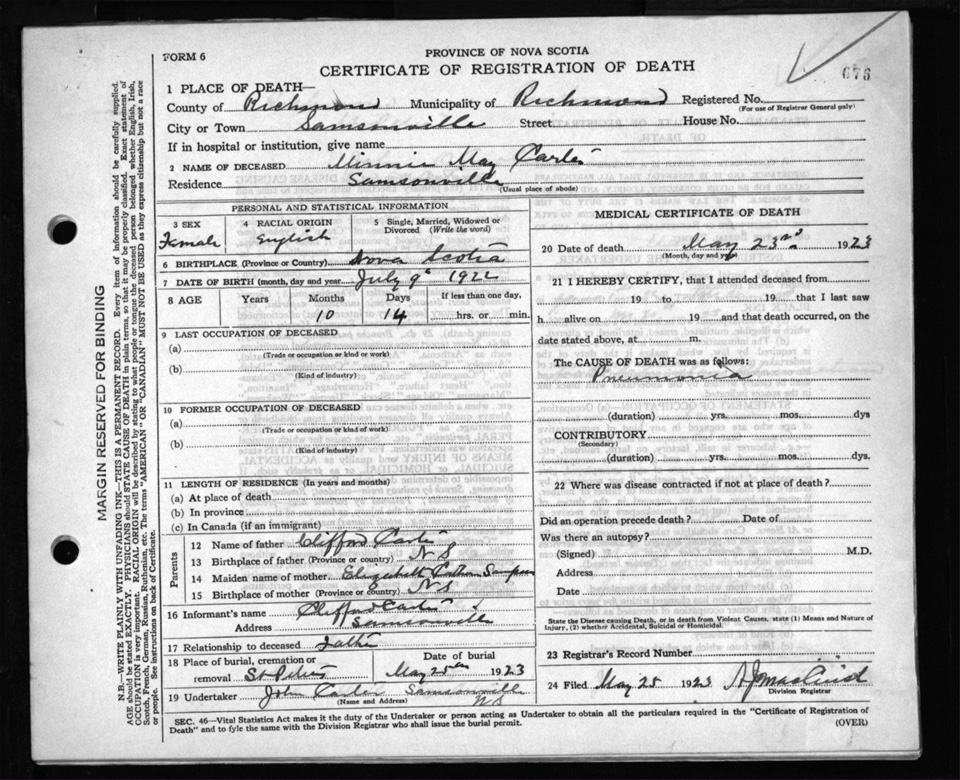 FORM 6
PROVINCE OF NOVA SCOTIA
CERTIFICATE OF REGISTRATION OF DEATH
676
1 PLACE OF DEATH—
County of Richmond Municipality of Richmond Registered No.
(For use of Registrar General only)
City or Town Samsonville Street House No.
If in hospital or institution, give name
2 NAME OF DECEASED Minnie May Carter
Residence Samsonville
(Usual place of abode)
PERSONAL AND STATISTICAL INFORMATION
3 SEX
Female
4 RACIAL ORIGIN
English
5 Single, Married, Widowed or Divorced (Write the word)
6 BIRTHPLACE (Province or Country) Nova Scotia
7 DATE OF BIRTH (month, day and year) July 9 1922
8 AGE Years Months Days If less than one day,
10 14 hrs. or min.
9 LAST OCCUPATION OF DECEASED
(a)
(Trade or occupation or kind or work)
(b)
(Kind of industry)
10 FORMER OCCUPATION OF DECEASED
(a)
(Trade or occupation or kind of work)
(b)
(Kind of industry)
11 LENGTH OF RESIDENCE (In years and months)
(a) At place of death
(b) In province
(c) In Canada (if an immigrant)
Parents
12 Name of father Clifford Carter
13 Birthplace of father (Province or country) N S
14 Maiden name of mother Elizabeth Sampson
15 Birthplace of mother (Province or country) N S
16 Informant's name Clifford Carter
Address Samsonville
17 Relationship to deceased Father
18 Place of burial, cremation or removal St Peters
Date of burial
May 25th 1923
19 Undertaker John Carter Samsonville N S
(Name and Address)
MEDICAL CERTIFICATE OF DEATH
20 Date of death May 23rd 1923
(Month, day and year)
21 I HEREBY CERTIFY, that I attended deceased from
19 to 19 that I last saw
h alive on 19 and that death occurred, on the
date stated above, at m.
The CAUSE OF DEATH was as follows:
Pneumonia
(duration) yrs. mos. dys
CONTRIBUTORY
(Secondary)
(duration) yrs. mos. dys.
22 Where was disease contracted if not at place of death?
Did an operation precede death? Date of
Was there an autopsy?
(Signed) M.D.
Address
Date
State the Disease causing Death, or in death from Violent Causes, state (1) Means and Nature of Injury, (2) whether Accidental, Suicidal or Homicidal.
23 Registrar's Record Number
24 Filed May 25 1923
Division Registrar
SEC. 46—Vital Statistics Act makes it the duty of the Undertaker or person acting as Undertaker to obtain all the particulars required in the "Certificate of Registration of
Death" and to fyle the same with the Division Registrar who shall issue the burial permit.
(OVER)
MARGIN RESERVED FOR BINDING
N.B.—WRITE PLAINLY WITH UNFADING INK—THIS IS A PERMANENT RECORD. Every item of information should be carefully supplied.
AGE should be stated EXACTLY. PHYSICIANS should STATE CAUSE OF DEATH in plain terms, so that it may be properly classified. Exact statement of
OCCUPATION is very important. RACIAL ORIGIN will be described by stating to what people or tongue the deceased person belonged whether English, Irish,
Scotch, French, German, Russian, Ruthenian, etc. The terms "AMERICAN" OR "CANADIAN" MUST NOT BE USED as they express citizenship but not a race
or people. See instructions on back of Certificate.